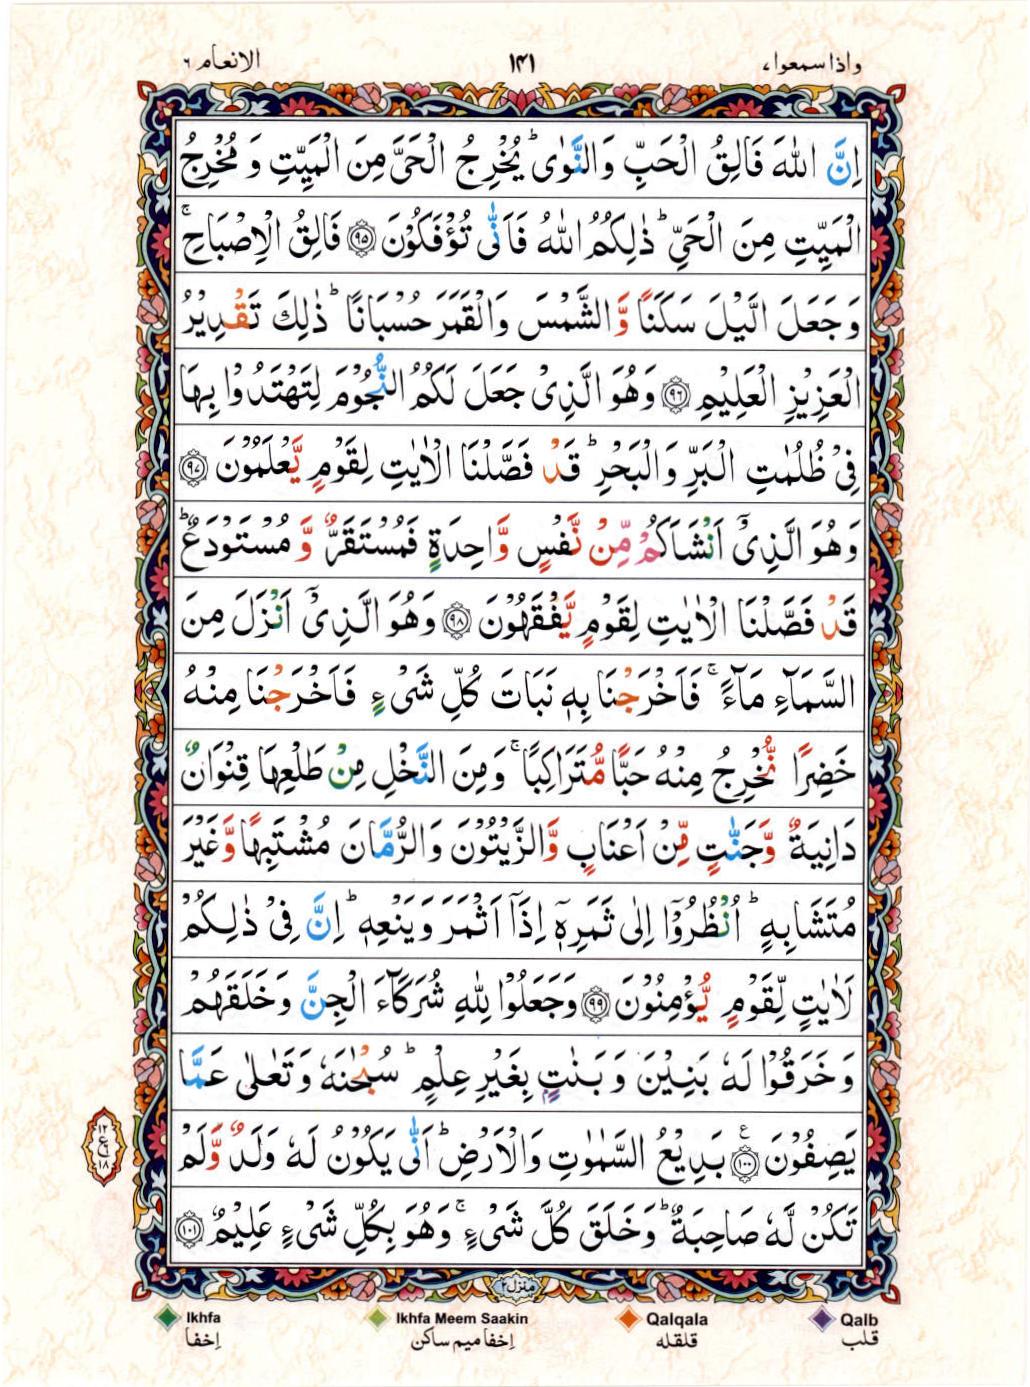 واذا سمعوا ۷
۱۴۱
الانعام ۶
اِنَّ اللّٰهَ فَالِقُ الْحَبِّ وَالنَّوٰى ؕ يُخْرِجُ الْحَىَّ مِنَ الْمَيِّتِ وَ مُخْرِجُ
الْمَيِّتِ مِنَ الْحَىِّ ؕ ذٰلِكُمُ اللّٰهُ فَاَنّٰى تُؤْفَكُوْنَ ۹۵ فَالِقُ الْاِصْبَاحِ ۚ
وَ جَعَلَ الَّيْلَ سَكَنًا وَّ الشَّمْسَ وَالْقَمَرَ حُسْبَانًا ؕ ذٰلِكَ تَقْدِيْرُ
الْعَزِيْزِ الْعَلِيْمِ ۹۶ وَهُوَ الَّذِىْ جَعَلَ لَكُمُ النُّجُوْمَ لِتَهْتَدُوْا بِهَا
فِىْ ظُلُمٰتِ الْبَرِّ وَالْبَحْرِ ؕ قَدْ فَصَّلْنَا الْاٰيٰتِ لِقَوْمٍ يَّعْلَمُوْنَ ۹۷
وَهُوَ الَّذِىْۤ اَنْشَاَكُمْ مِّنْ نَّفْسٍ وَّاحِدَةٍ فَمُسْتَقَرٌّ وَّ مُسْتَوْدَعٌ ؕ
قَدْ فَصَّلْنَا الْاٰيٰتِ لِقَوْمٍ يَّفْقَهُوْنَ ۹۸ وَهُوَ الَّذِىْۤ اَنْزَلَ مِنَ
السَّمَآءِ مَآءً ۚ فَاَخْرَجْنَا بِهٖ نَبَاتَ كُلِّ شَىْءٍ فَاَخْرَجْنَا مِنْهُ
خَضِرًا نُّخْرِجُ مِنْهُ حَبًّا مُّتَرَاكِبًا ۚ وَمِنَ النَّخْلِ مِنْ طَلْعِهَا قِنْوَانٌ
دَانِيَةٌ وَّجَنّٰتٍ مِّنْ اَعْنَابٍ وَّالزَّيْتُوْنَ وَالرُّمَّانَ مُشْتَبِهًا وَّغَيْرَ
مُتَشَابِهٍ ؕ اُنْظُرُوْۤا اِلٰى ثَمَرِهٖۤ اِذَاۤ اَثْمَرَ وَيَنْعِهٖ ؕ اِنَّ فِىْ ذٰلِكُمْ
لَاٰيٰتٍ لِّقَوْمٍ يُّؤْمِنُوْنَ ۹۹ وَجَعَلُوْا لِلّٰهِ شُرَكَآءَ الْجِنَّ وَخَلَقَهُمْ
وَ خَرَقُوْا لَهٗ بَنِيْنَ وَ بَنٰتٍۭ بِغَيْرِ عِلْمٍ ؕ سُبْحٰنَهٗ وَتَعٰلٰى عَمَّا
يَصِفُوْنَ ۱۰۰ ع بَدِيْعُ السَّمٰوٰتِ وَالْاَرْضِ ؕ اَنّٰى يَكُوْنُ لَهٗ وَلَدٌ وَّلَمْ
تَكُنْ لَّهٗ صَاحِبَةٌ ؕ وَخَلَقَ كُلَّ شَىْءٍ ۚ وَهُوَ بِكُلِّ شَىْءٍ عَلِيْمٌ ۱۰۱
۱۲
ع
۱۸
منزل ۲
Ikhfa Ikhfa Meem Saakin Qalqala Qalb
اِخفا اِخفا میم ساکن قلقله قلب